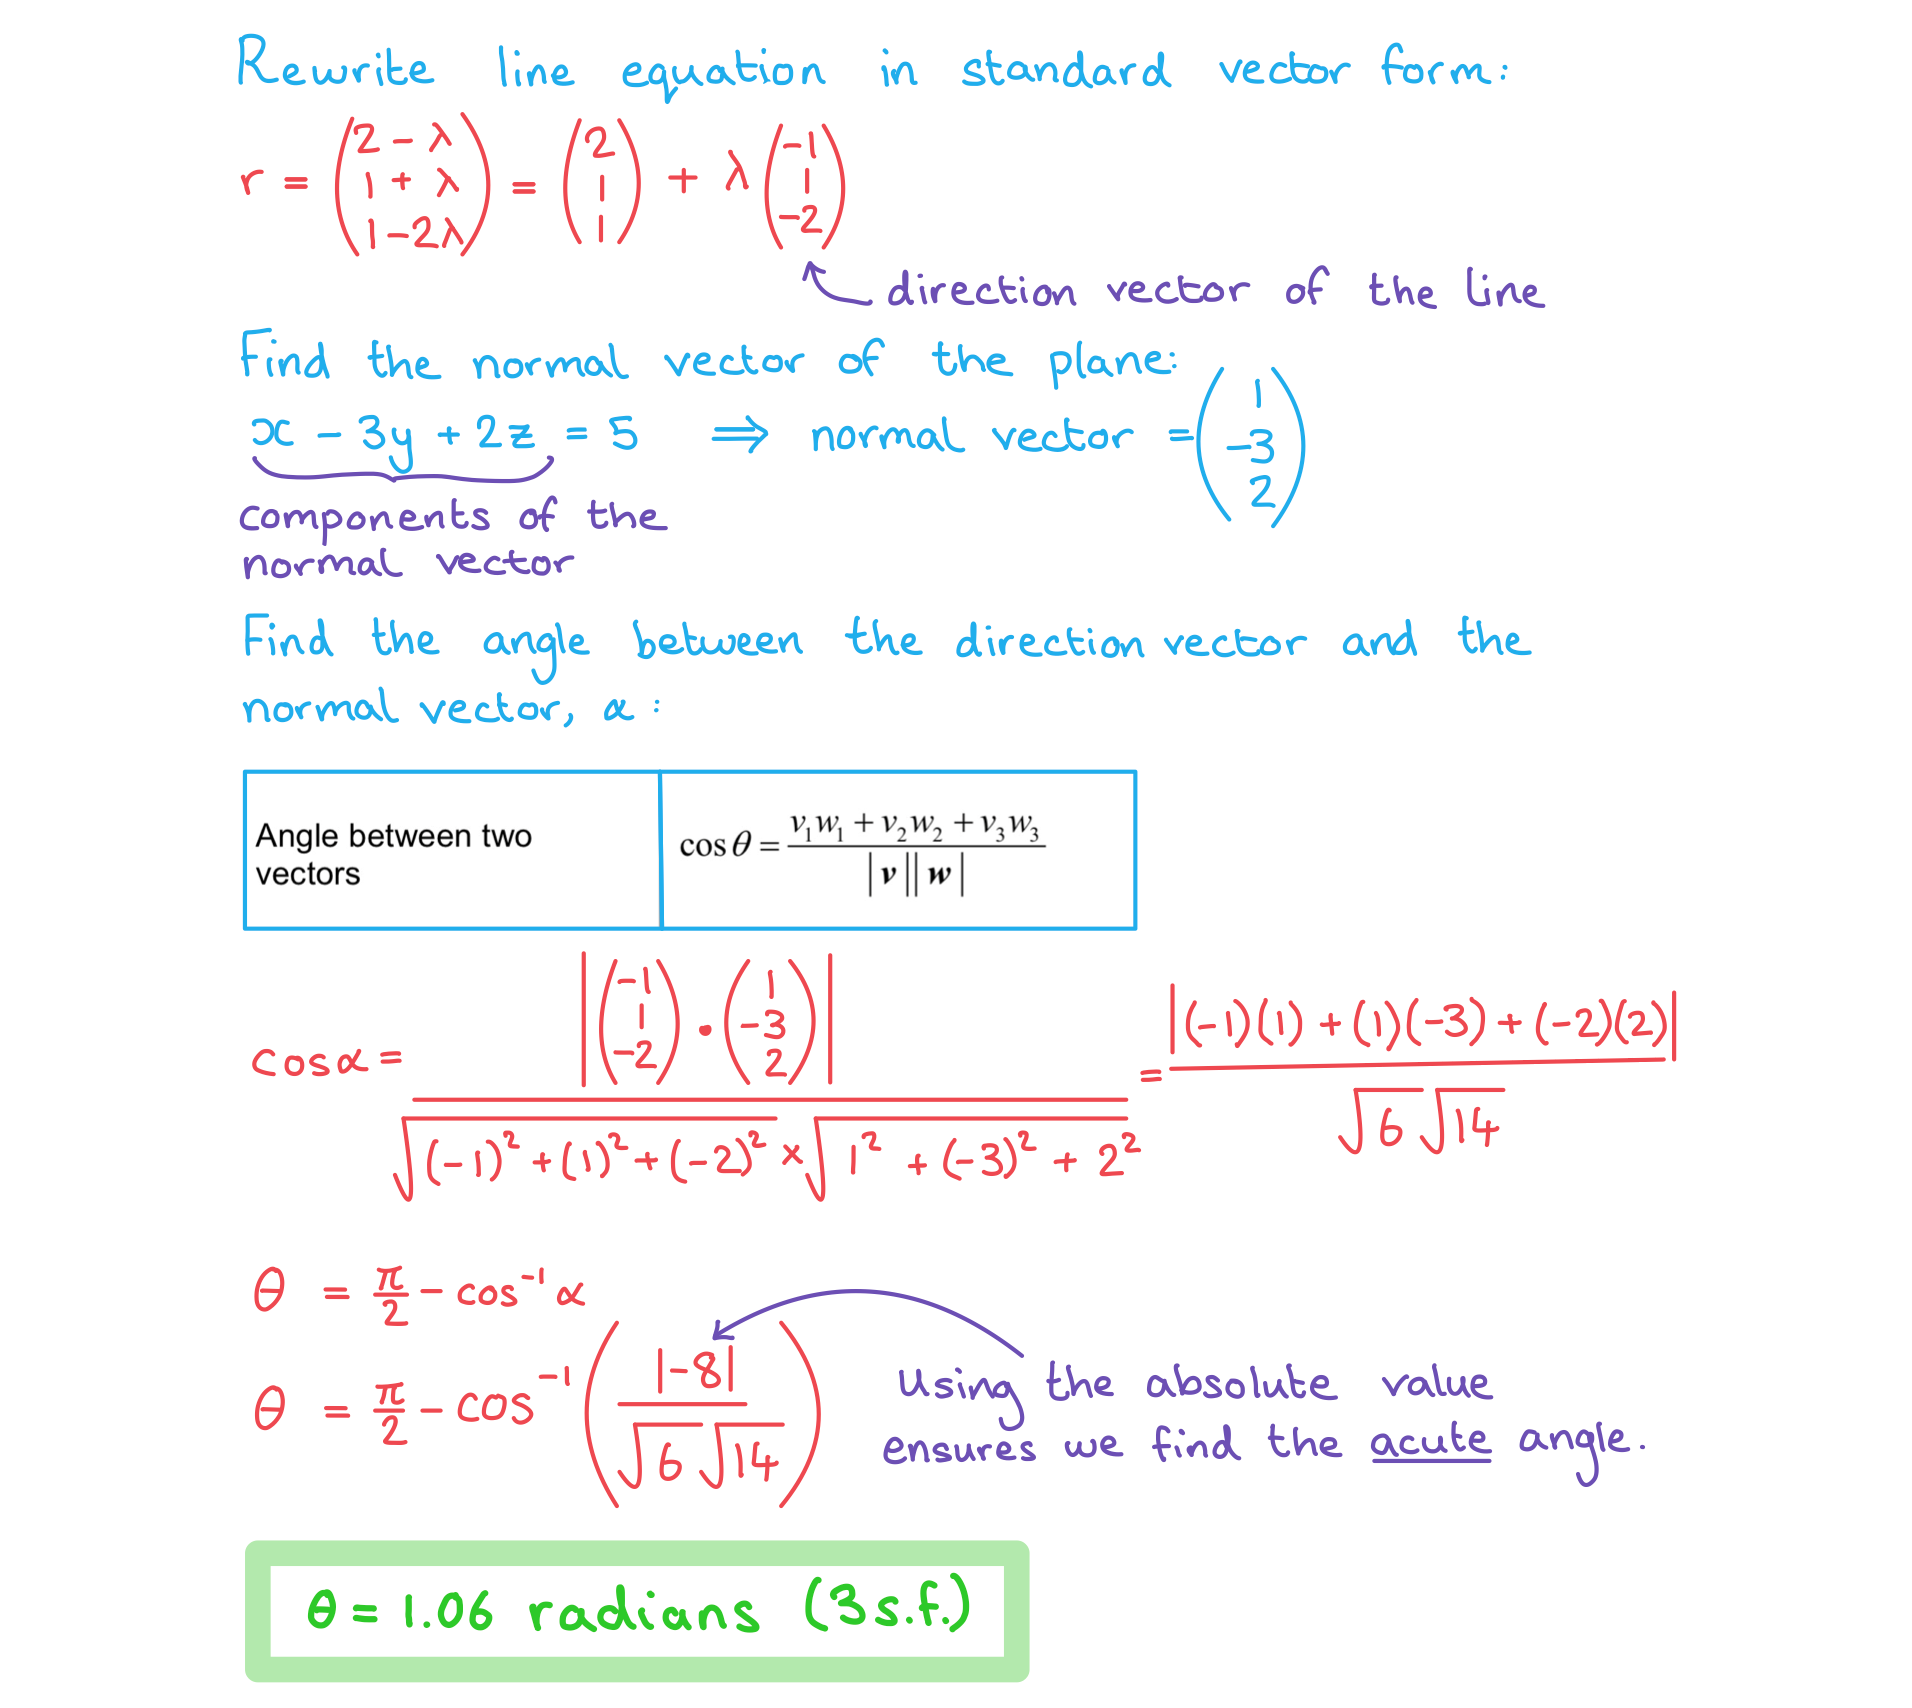 Rewrite line equation in standard vector form:
r = (2 - λ, 1 + λ, 1 - 2λ) = (2, 1, 1) + λ(-1, 1, -2)
direction vector of the line
Find the normal vector of the plane:
x - 3y + 2z = 5 ⟹ normal vector = (1, -3, 2)
components of the
normal vector
Find the angle between the direction vector and the
normal vector, α:
Angle between two
vectors
cos θ = (v₁w₁ + v₂w₂ + v₃w₃) / (|v||w|)
cosα = |(-1, 1, -2) · (1, -3, 2)| / (√((-1)² + (1)² + (-2)²) × √(1² + (-3)² + 2²)) = |(-1)(1) + (1)(-3) + (-2)(2)| / (√6 √14)
θ = π/2 - cos⁻¹ α
θ = π/2 - cos⁻¹(|-8| / (√6 √14))
Using the absolute value
ensures we find the acute angle.
θ = 1.06 radians (3 s.f.)